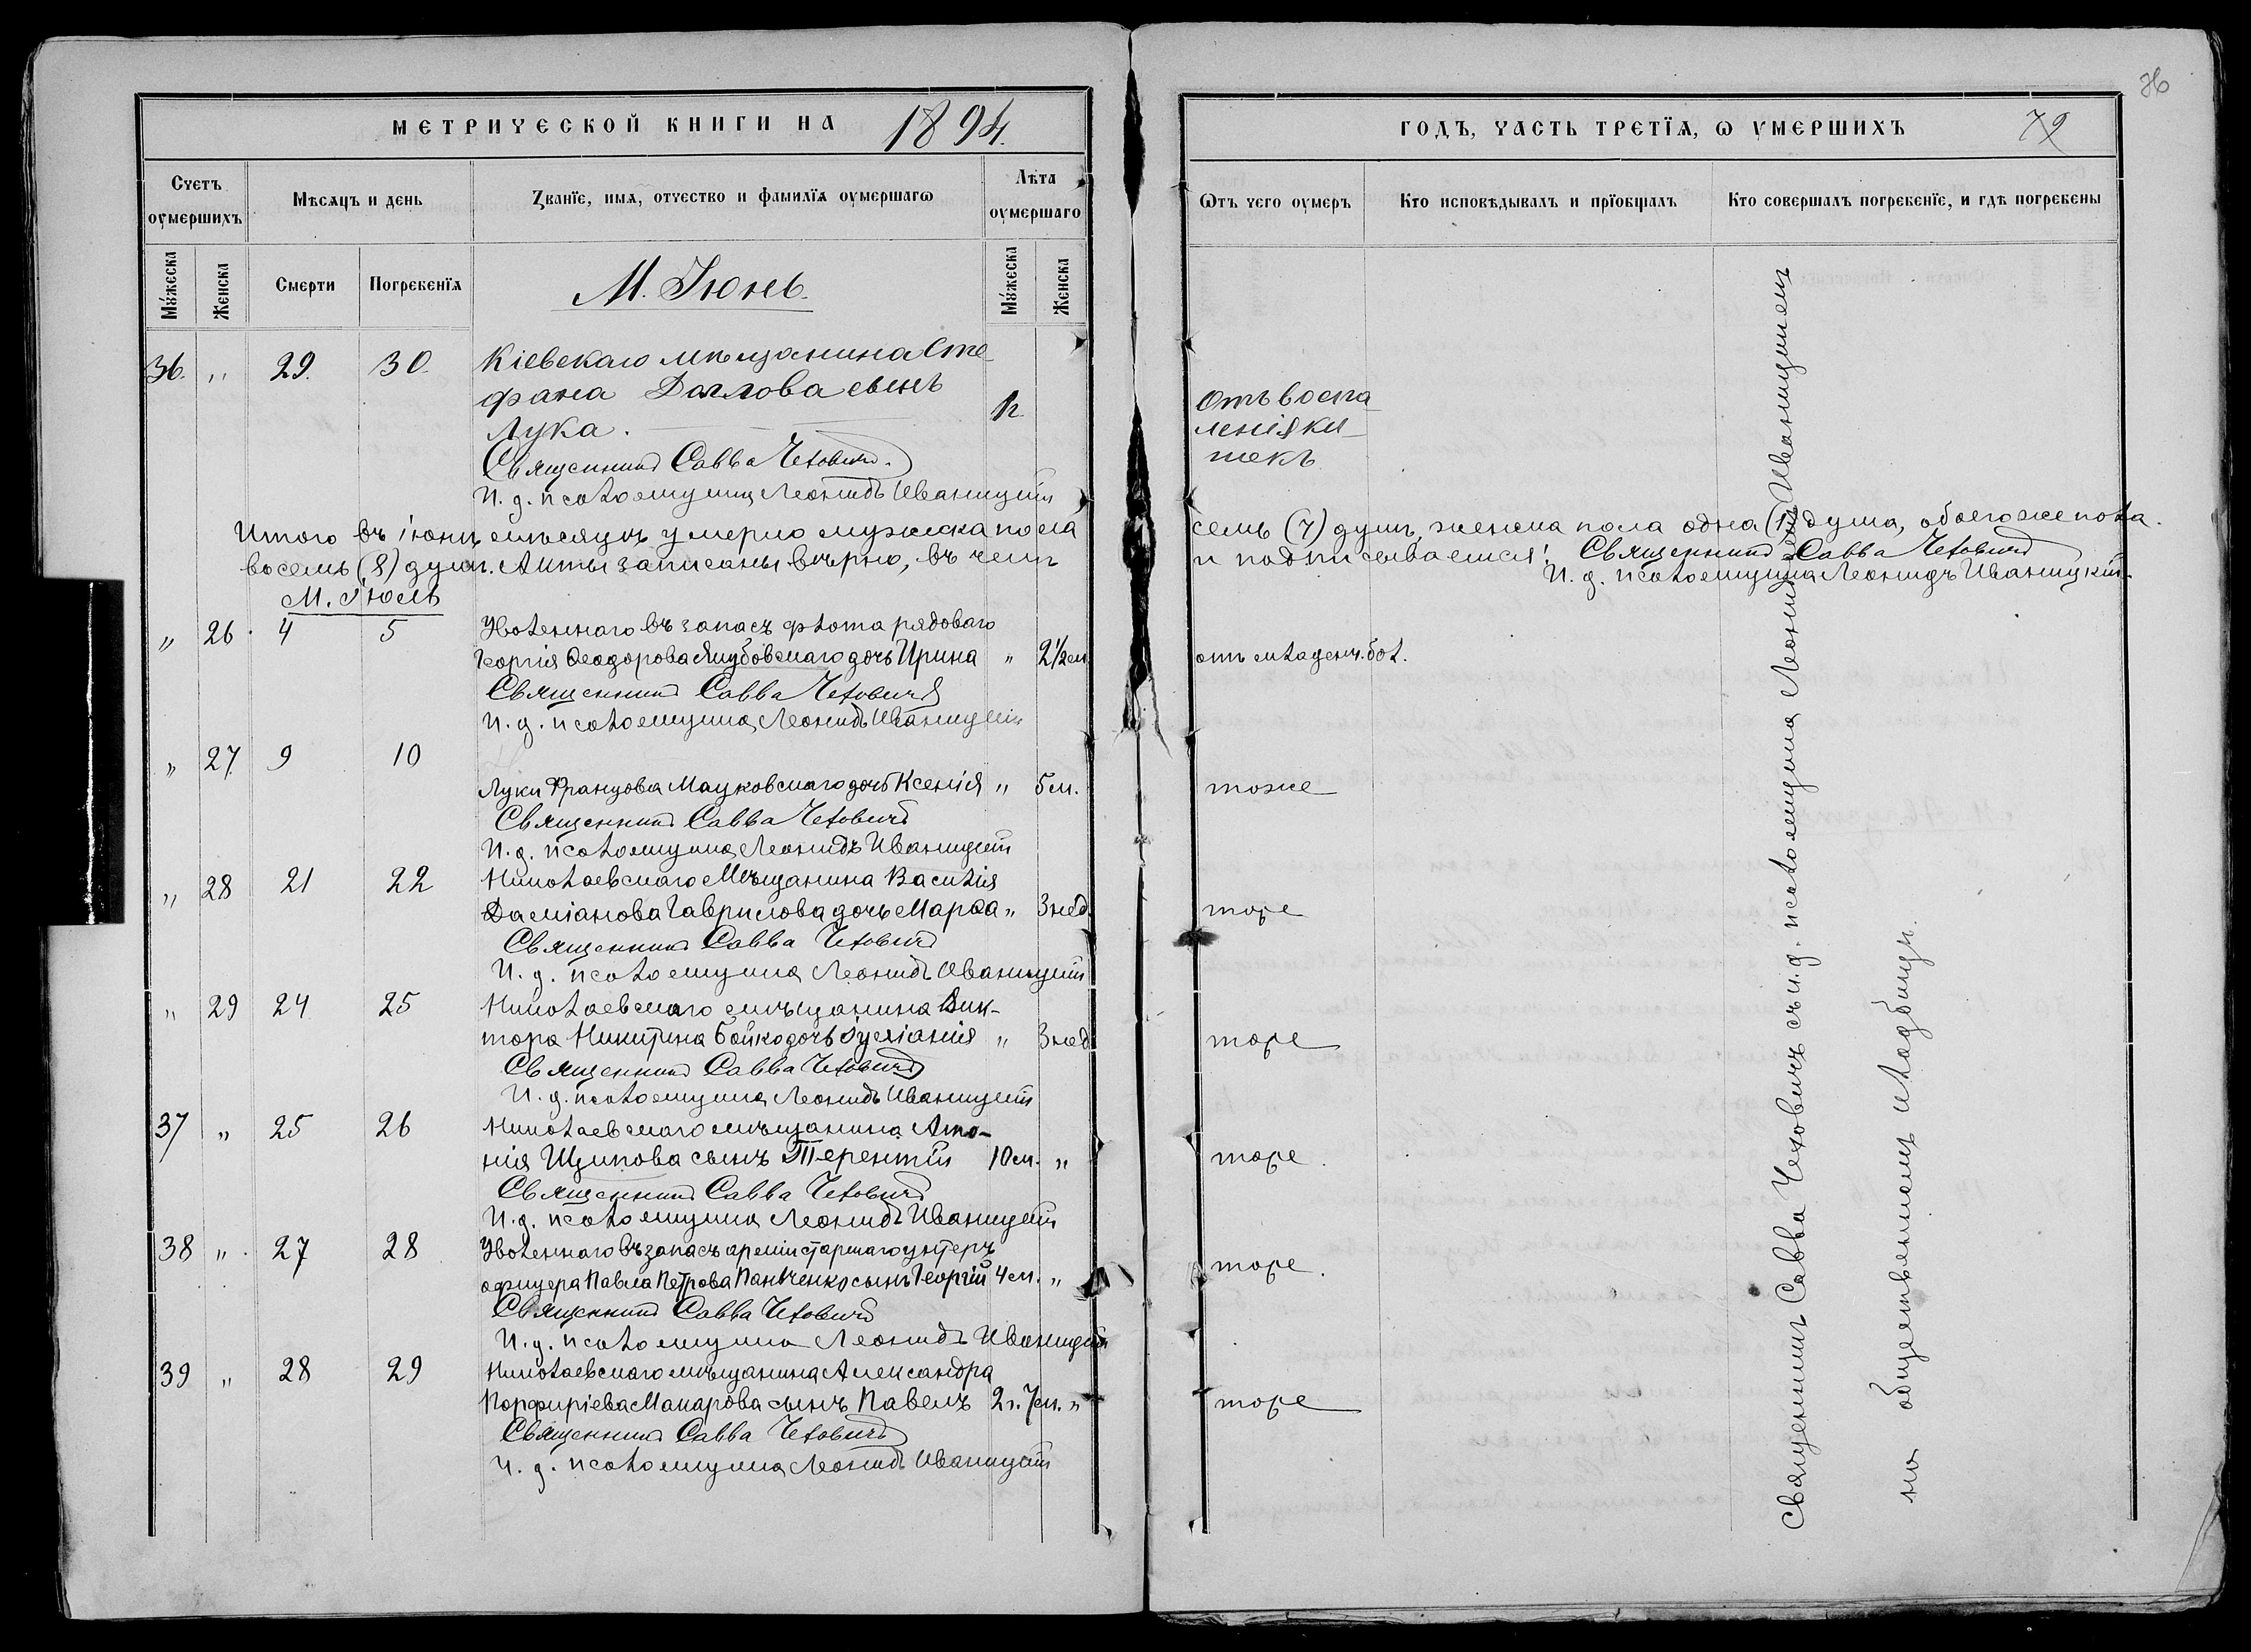 МЕТРИЧЕСКОЙ КНИГИ НА 1894.
Счетъ оумершихъ
Мѣсяцъ и день
Званїе, имя, отчество и фамилїя оумершагѡ
Лѣта оумершаго
Мꙋжеска
Женска
Смерти
Погребенїя
М. Іюнь.
Мꙋжеска
Женска
36. „ 29. 30. Кіевскаго мѣщанина Сте-
фана сынъ
Лука.
Священникъ Савва Чеховичъ.
И. д. псаломщика Леонидъ Иваницкій
Итого въ іюнѣ мѣсяцѣ умерло мужеска пола
восемь (8) душъ. Акты записаны вѣрно, въ чемъ
М. Іюль
„ 26. 4 5 Уволеннаго въ запасъ флота рядоваго
Георгія Ѳеодорова Якубовскаго дочь Ирина „ 2½ м.
Священникъ Савва Чеховичъ
И. д. псаломщика Леонидъ Иваницкій
„ 27. 9 10
Луки Францова Мацковскаго дочь Ксенія „ 5 м.
Священникъ Савва Чеховичъ
И. д. псаломщика Леонидъ Иваницкій
„ 28 21 22 Николаевскаго Мѣщанина Василія
Даміанова Гаврилова дочь Марѳа „ 3 нед.
Священникъ Савва Чеховичъ
И. д. псаломщика Леонидъ Иваницкій
„ 29 24 25 Николаевскаго мѣщанина Вик-
тора Никитина Бойко дочь Іуліанія „ 3 нед.
Священникъ Савва Чеховичъ
И. д. псаломщика Леонидъ Иваницкій
37 „ 25 26 Николаевскаго мѣщанина
Щипова сынъ Терентій 10 м. „
Священникъ Савва Чеховичъ
И. д. псаломщика Леонидъ Иваницкій
38 „ 27 28 Уволеннаго въ запасъ арміи старшаго унтеръ
офицера Павла Петрова Панченко сынъ Георгій 4 м. „
Священникъ Савва Чеховичъ
И. д. псаломщика Леонидъ Иваницкій
39 „ 28 29 Николаевскаго мѣщанина Александра
Порфиріева Макарова сынъ Павелъ 2 г. 7 м. „
Священникъ Савва Чеховичъ
И. д. псаломщика Леонидъ Иваницкій
36
ГОДЪ, ЧАСТЬ ТРЕТЇЯ, Ѡ ОУМЕРШИХЪ
79
Ѿтъ чего оумеръ
Кто исповѣдывалъ и прїобщалъ
Кто совершалъ погребенїе, и гдѣ погребены
Отъ воспа-
ленія ки-
шекъ
семь (7) душъ, женска пола одна (1) душа, обоего же пола
и подписываемся: Священникъ Савва Чеховичъ
И. д. псаломщика Леонидъ Иваницкій
отъ младенч. бол.
тоже
тоже
тоже
тоже.
тоже.
тоже
Священникъ Савва Чеховичъ съ и. д. псаломщика Леонидомъ Иваницкимъ
на общественномъ кладбищѣ.